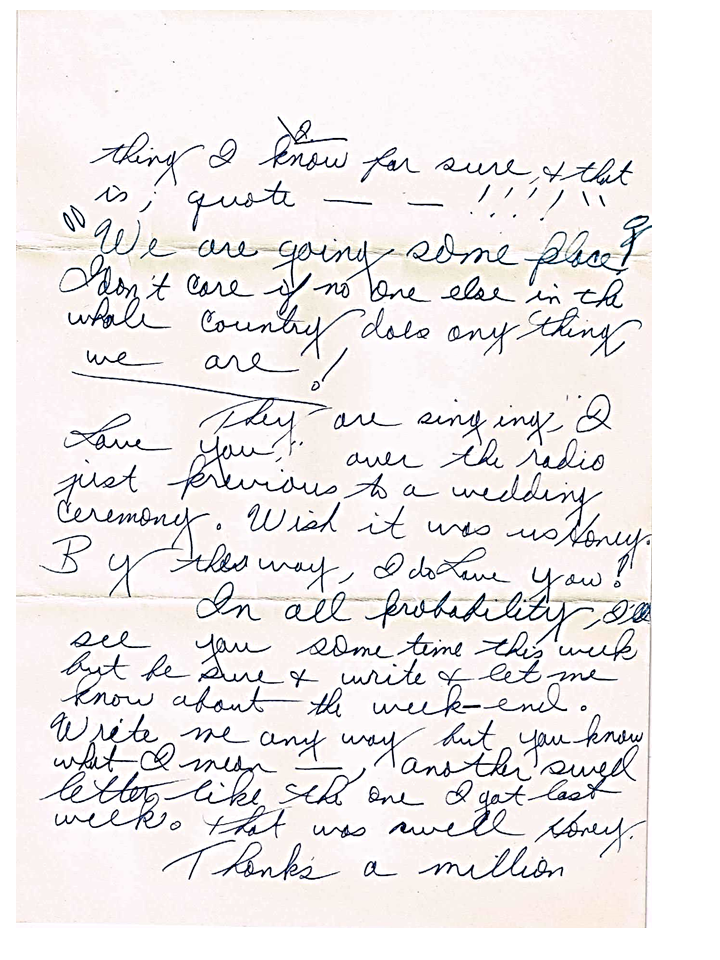 2
thing I know for sure, & that
is; quote — — !!!!!
"We are going some place!
I don't care if no one else in th
whole country does any thing
we are!
They are singing, "I
Love you," over the radio
just previous to a wedding
ceremony. Wish it was us Honey.
By the way, I do Love you!
In all probability, I'll
see you some time this week
but be sure & write & let me
know about the week-end.
Write me any way but you know
what I mean —, another swell
letter like the one I got last
week. That was swell Honey.
Thanks a million